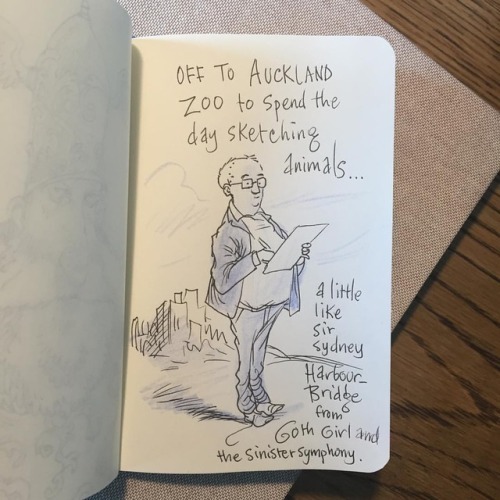 OFF TO AUCKLAND
ZOO to spend the
day sketching
animals...
a little
like
sir
sydney
Harbour-
Bridge
from
Goth Girl and
the Sinister symphony.